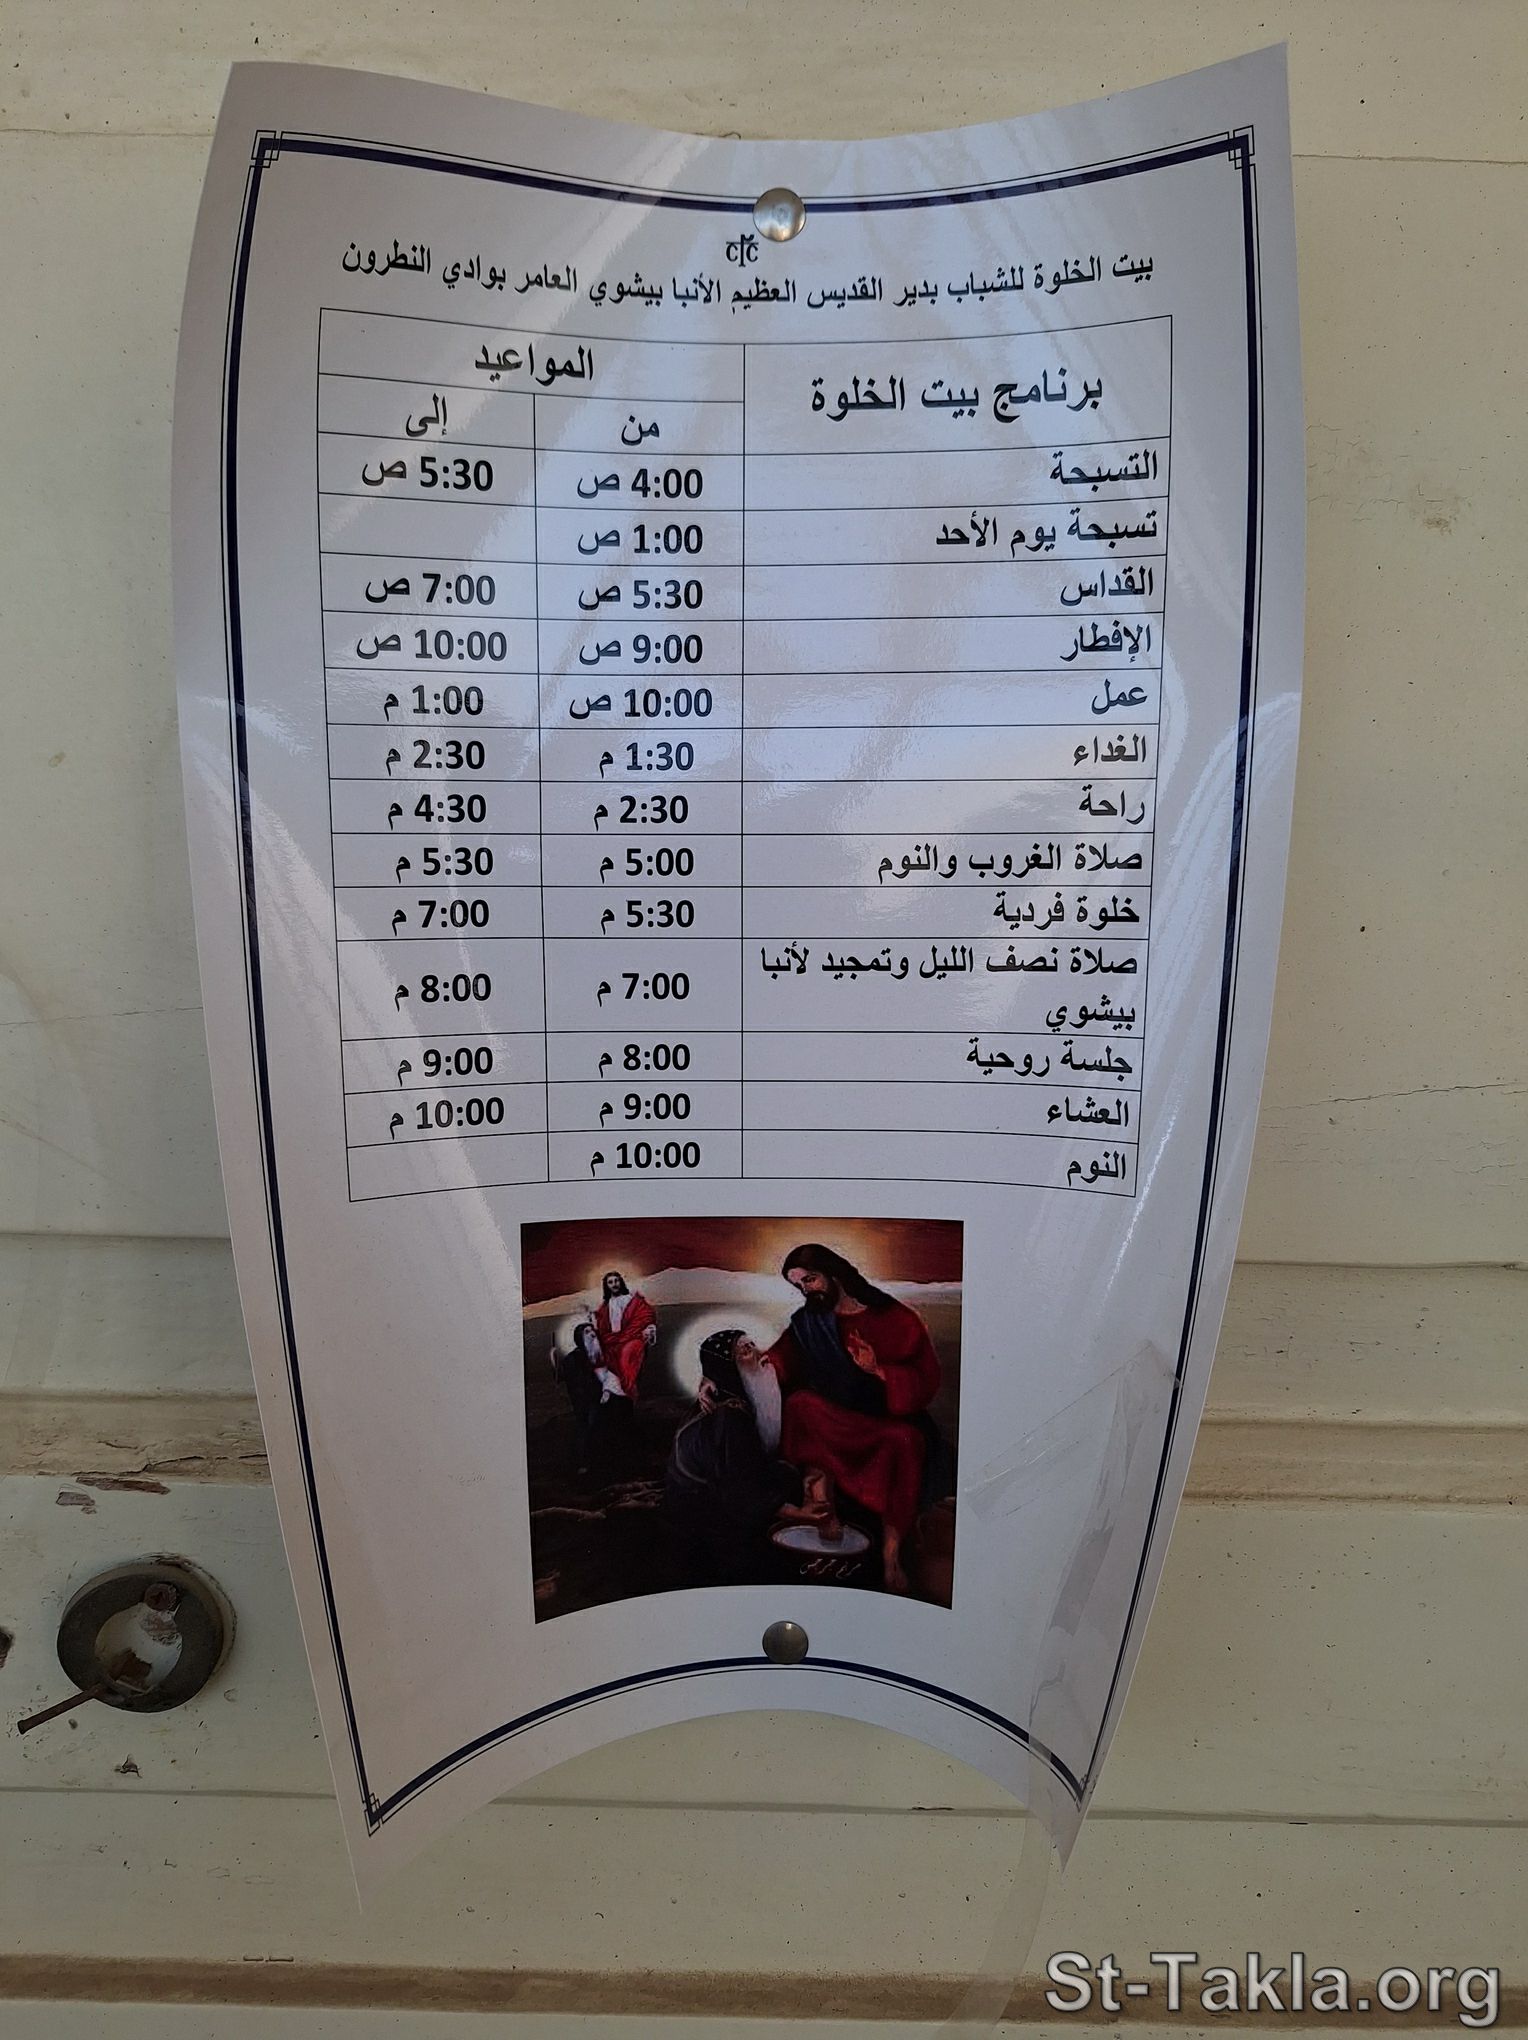 بيت الخلوة للشباب بدير القديس العظيم الأنبا بيشوي العامر بوادي النطرون
برنامج بيت الخلوة المواعيد
من إلى
التسبحة 4:00 ص 5:30 ص
تسبحة يوم الأحد 1:00 ص
القداس 5:30 ص 7:00 ص
الإفطار 9:00 ص 10:00 ص
عمل 10:00 ص 1:00 م
الغداء 1:30 م 2:30 م
راحة 2:30 م 4:30 م
صلاة الغروب والنوم 5:00 م 5:30 م
خلوة فردية 5:30 م 7:00 م
صلاة نصف الليل وتمجيد لأنبا
بيشوي 7:00 م 8:00 م
جلسة روحية 8:00 م 9:00 م
العشاء 9:00 م 10:00 م
النوم 10:00 م
St-Takla.org